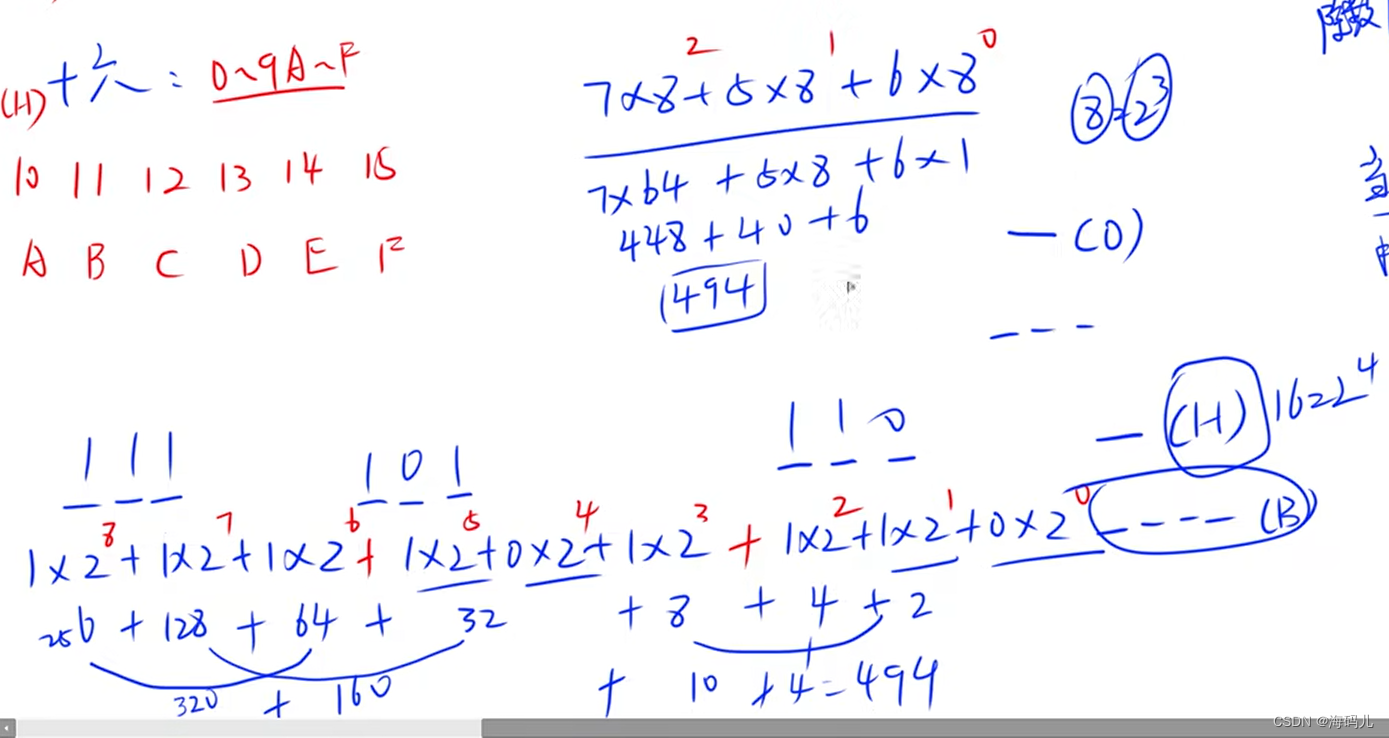 (H) 十六: 0~9A~F
10 11 12 13 14 15
A B C D E F
7×8²+5×8¹+6×8⁰
7×64+5×8+6×1
448+40+6
494
8=2³
除数
—(O)
---
—(H) 16=2⁴
----(B)
111 101 110
1×2⁸+1×2⁷+1×2⁶+1×2⁵+0×2⁴+1×2³+1×2²+1×2¹+0×2⁰
256+128+64+32+8+4+2
320+160+10+4=494
CSDN @海码儿